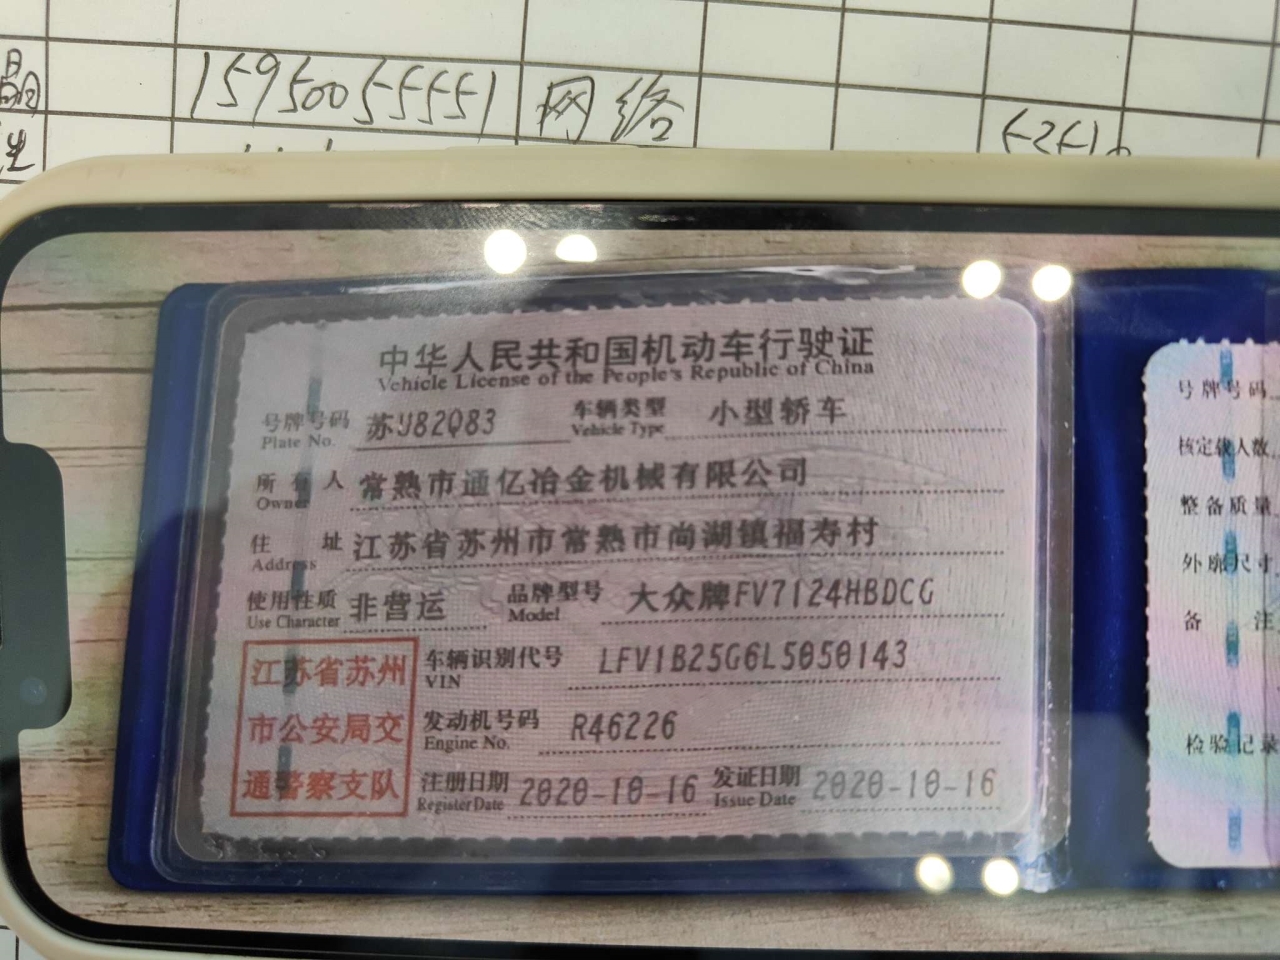 晶
15950055551 网络
生
中华人民共和国机动车行驶证
Vehicle License of the People's Republic of China
号牌号码 苏U82Q83 车辆类型 小型轿车
Plate No. Vehicle Type
所有人 常熟市通亿冶金机械有限公司
Owner
住址 江苏省苏州市常熟市尚湖镇福寿村
Address
使用性质 非营运 品牌型号 大众牌FV7124HBDCG
Use Character Model
江苏省苏州
市公安局交
通警察支队
车辆识别代号 LFV1B25G6L5050143
VIN
发动机号码 R46226
Engine No.
注册日期 2020-10-16 发证日期 2020-10-16
Register Date Issue Date
号牌号码
核定载人数
整备质量
外廓尺寸
备注
检验记录